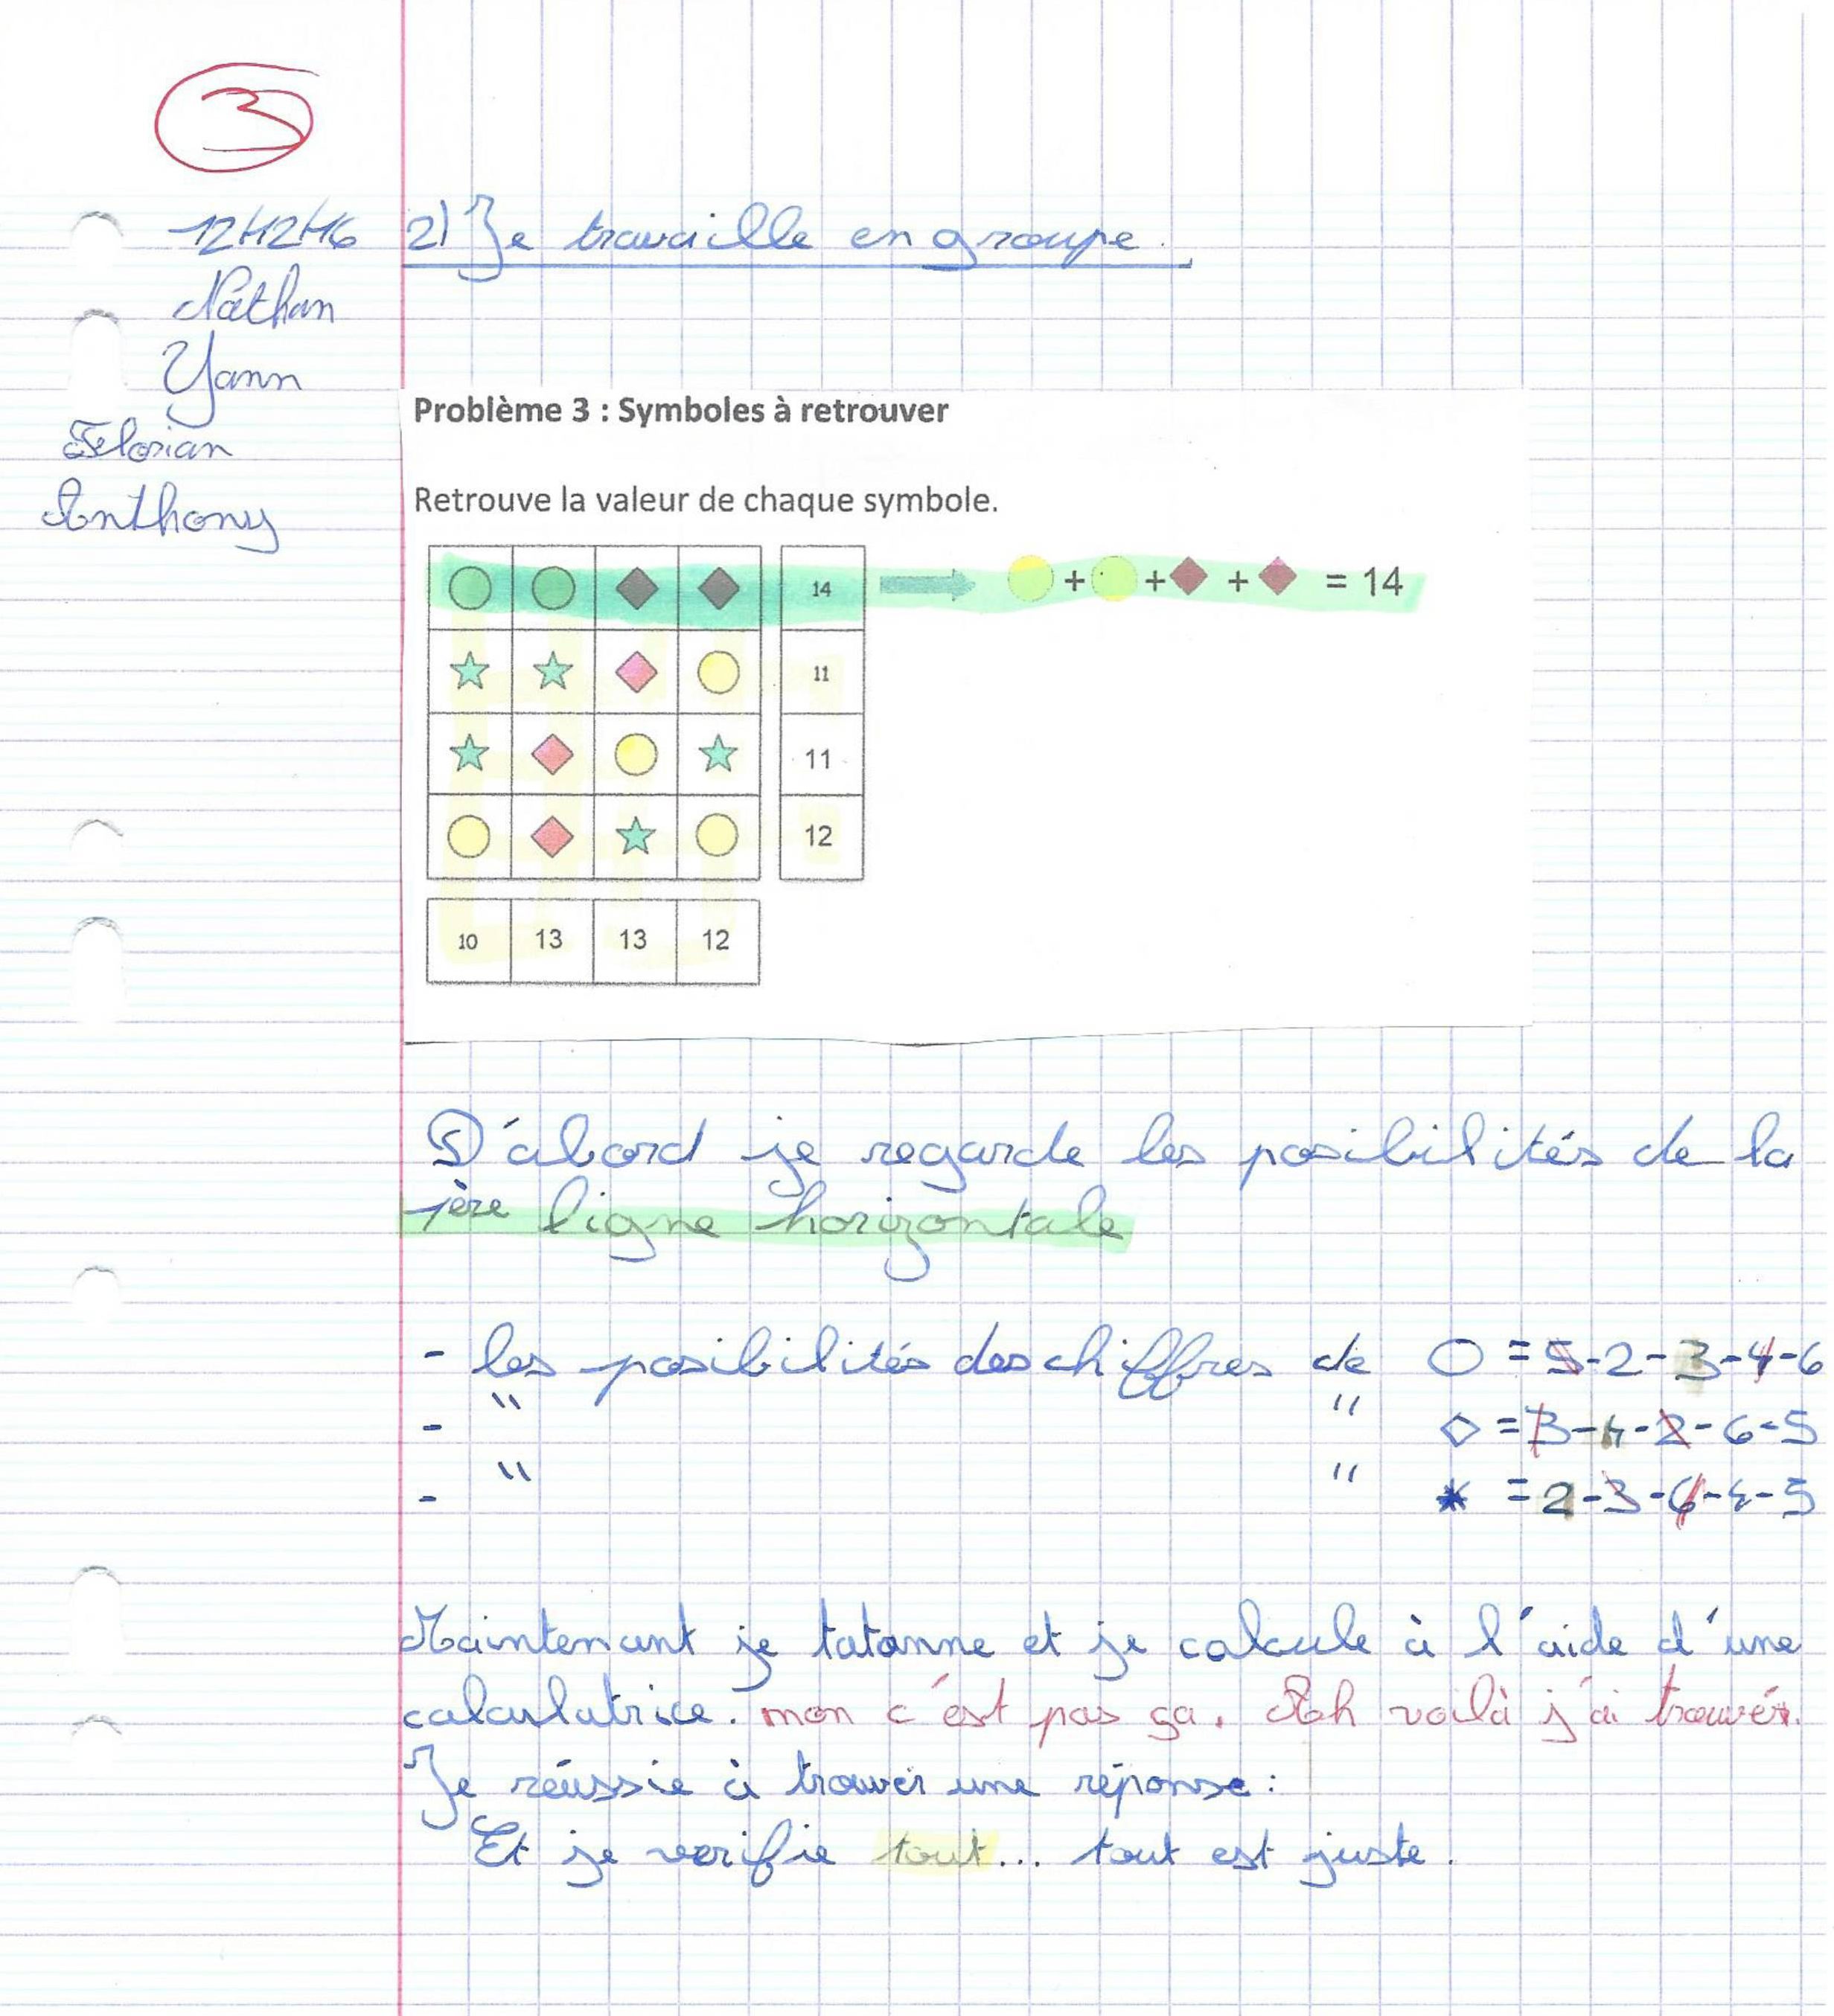 3
12/12/16 2) Je travaille en groupe.
Nathan
Yann
Florian
Anthony
Problème 3 : Symboles à retrouver
Retrouve la valeur de chaque symbole.
14 + + + = 14
11
11
12
10 13 13 12
D'abord je regarde les posibilités de la
1ère ligne horizontale
- les posibilités des chiffres de ○ = 5-2-3-4-6
- " " ◇ = 3-4-2-6-5
- " " * = 2-3-6-4-5
Maintenant je tatonne et je calcule à l'aide d'une
calculatrice. mon c'est pas ça. Ah voilà j'ai trouvé.
Je réussie à trouver une réponse :
Et je verifie tout... tout est juste.